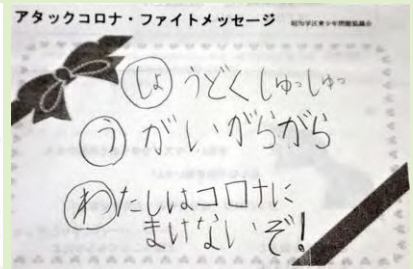 アタックコロナ・ファイトメッセージ
しょうどくしゅっしゅっ
うがいがらがら
わたしはコロナに
まけないぞ!